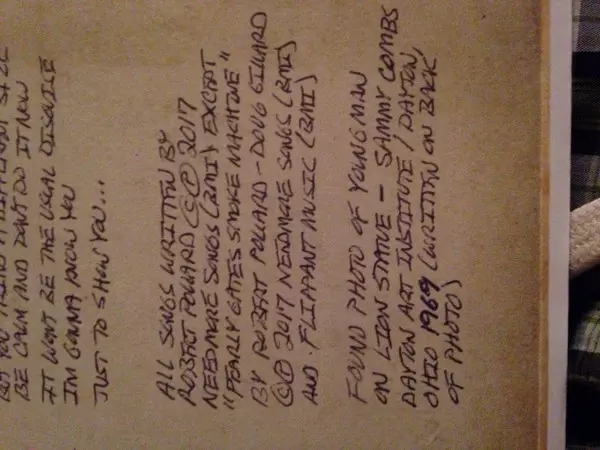 BE CALM AND DON'T DO IT NOW
IT WON'T BE THE USUAL DISGUISE
I'M GONNA KNOW YOU
JUST TO SHOW YOU...
ALL SONGS WRITTEN BY
ROBERT POLLARD © ℗ 2017
NEEDMORE SONGS (BMI) EXCEPT
"PEARLY GATES SMOKE MACHINE"
BY ROBERT POLLARD - DOUG GILLARD
© ℗ 2017 NEEDMORE SONGS (BMI)
AND FLIPPANT MUSIC (BMI)
FOUND PHOTO OF YOUNG MAN
ON LION STATUE - SAMMY COMBS
DAYTON ART INSTITUTE / DAYTON,
OHIO 1969 (WRITTEN ON BACK
OF PHOTO)